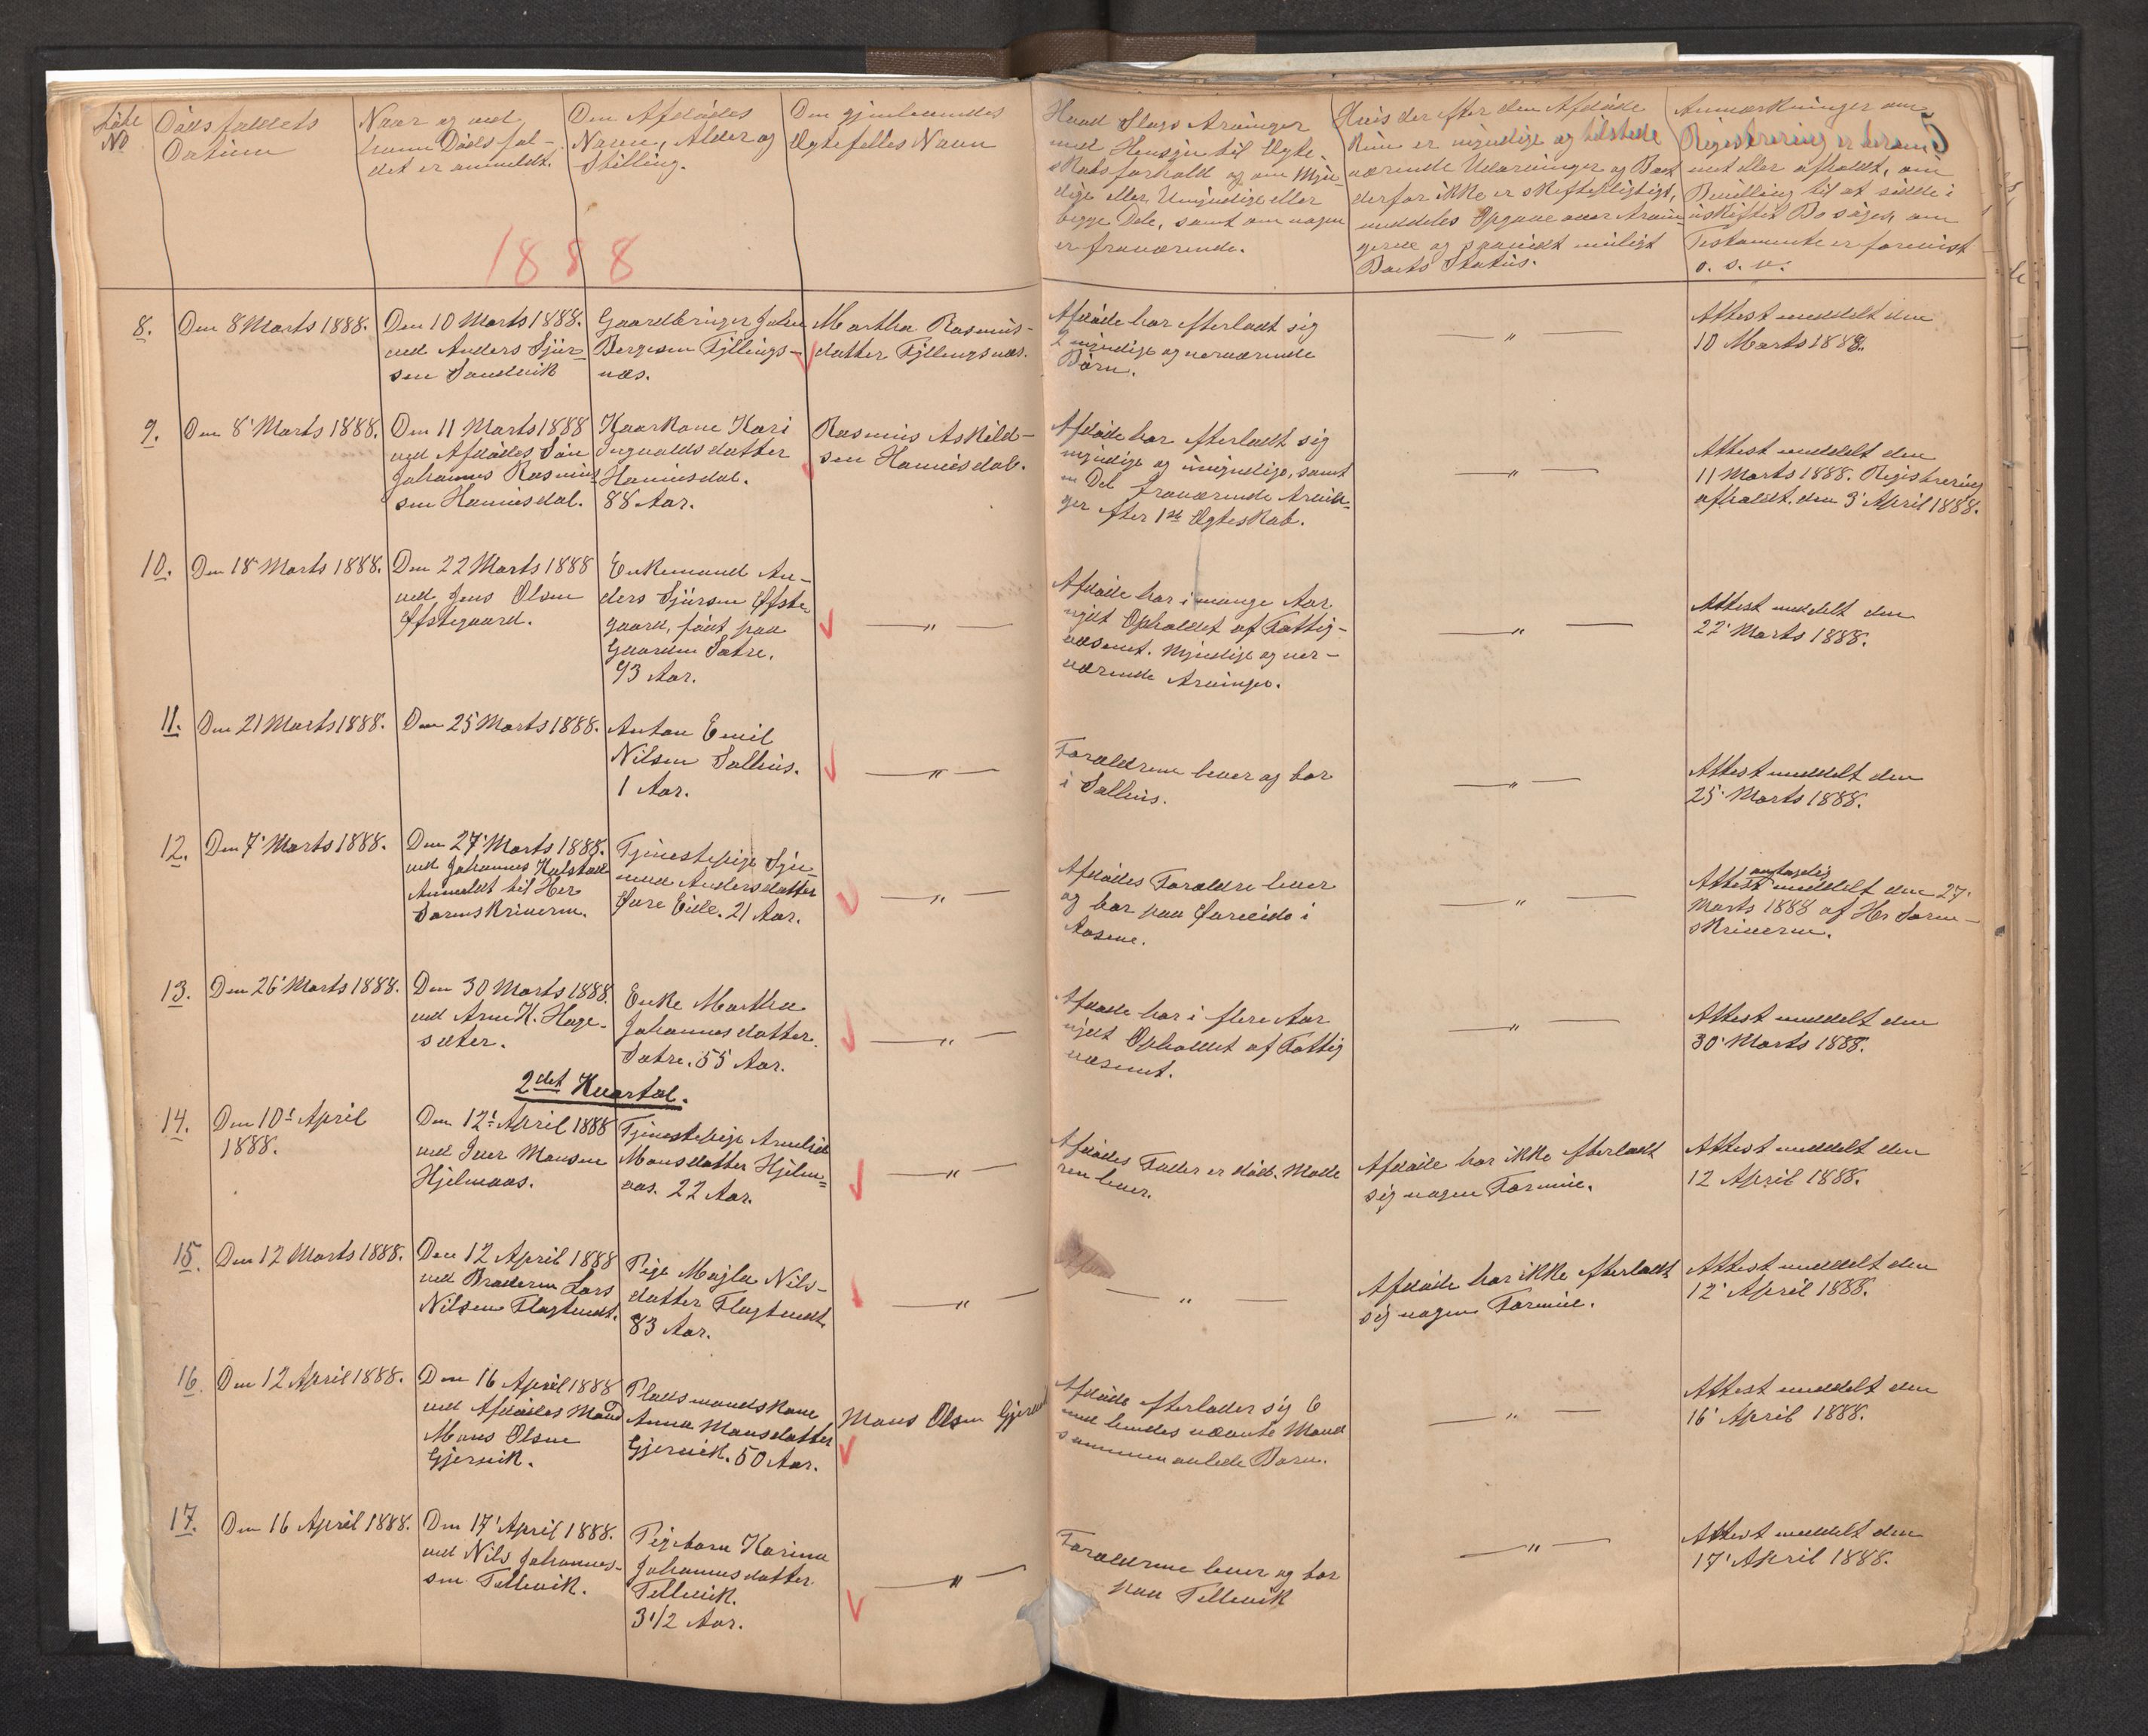 Löbe No
Dödsfaldets
Datum
Naar og ved
hvem Dödsfal-
det er anmeldt.
Den Afdödes
Navn, Alder og
Stilling.
Den gjenlevendes
Ægtefelles Navn
Hvad Slags Arvinger
med Hensyn til Ægte-
skabsforhold og om Myn-
dige eller Umyndige eller
begge Dele, samt om nogen
er fraværende.
Hvis der efter den Afdöde
kun er myndige og tilstede
værende Udarvinger og Boet
derfor ikke er skiftepligtigt,
meddeles Opgave over Arvin-
gerne og saavidt muligt
Boets Status.
Anmærkninger om
Registrering er beram-
met eller afholdt, om
Bevilling til at sidde i
uskiftet Bo söges, om
Testamente er forevist
o. s. v.
5
1888
8.
Den 8 Marts 1888.
Den 10 Marts 1888.
ved Anders Sjur-
sen Sandvik
Gaardbruger John
Bergesen Fyllings-
næs.
Martha Rasmus-
datter Fyllingsnæs.
Afdöde har efterladt sig
2 myndige og nærværende
Börn.
— „ —
Attest meddelt den
10 Marts 1888.
9.
Den 8' Marts 1888.
Den 11 Marts 1888
ved Afdödes Sön
Johannes Rasmus
sen Hannisdal.
Kaarkone Kari
Ingvaldsdatter
Hannisdal.
88 Aar.
Rasmus Askild-
sen Hannisdal.
Afdöde har efterladt sig
myndige og umyndige, samt
en Del fraværende Arvin-
ger efter 1ste Ægteskab.
— „ —
Attest meddelt den
11 Marts 1888. Registrering
afholdt den 3' April 1888.
10.
Den 18 Marts 1888.
Den 22 Marts 1888
ved Jens Olsen
Öfstegaard.
Enkemand An-
ders Sjursen Öfste
gaard, födt paa
Gaarden Sætre.
93 Aar.
— „ —
Afdöde har i mange Aar
nydt Opholdet af Fattig-
væsenet. Myndige og nær-
værende Arvinger.
— „ —
Attest meddelt den
22' Marts 1888.
11.
Den 21 Marts 1888.
Den 25 Marts 1888.
Anton Emil
Nilsen Salhus.
1 Aar.
— „ —
Forældrene lever og bor
i Salhus.
— „ —
Attest meddelt den
25' Marts 1888.
12.
Den 7' Marts 1888.
Den 27' Marts 1888.
ved Johannes Kalstad
Anmeldt til Her
Sorenskriveren.
Tjenestepige Syn-
neve Andersdatter
Öure Eide. 21 Aar.
— „ —
Afdödes Forældre lever
og bor paa Öureide i
Aasene.
— „ —
antagelig
Attest meddelt den 27'
Marts 1888 af Hr Soren-
skriveren.
13.
Den 26' Marts 1888.
Den 30 Marts 1888.
ved Arne K. Hage-
sæter.
Enke Martha
Johannesdatter
Sætre. 55 Aar.
— „ —
Afdöde har i flere Aar
nydt Opholdet af Fattig
væsenet.
— „ —
Attest meddelt den
30' Marts 1888.
2det Kvartal.
14.
Den 10' April
1888.
Den 12' April 1888
ved Iver Monsen
Hjelmaas.
Tjenestepige
Monsdatter Hjelm-
aas. 22 Aar.
— „ —
Afdödes Fader er död. Mode
ren lever.
Afdöde har ikke efterladt
sig nogen Formue.
Attest meddelt den
12 April 1888.
15.
Den 12 Marts 1888.
Den 12 April 1888
ved Broderen Lars
Nilsen Flagtvedt.
Pige Magla Nils-
datter Flagtvedt.
83 Aar.
— „ —
— „ —
Afdöde har ikke efterladt
sig nogen Formue.
Attest meddelt den
12' April 1888.
16.
Den 12 April 1888.
Den 16 April 1888
ved Afdödes Mand
Mons Olsen
Gjervik.
Pladsmandskone
Anna Monsdatter
Gjervik. 50 Aar.
Mons Olsen Gjervik
Afdöde efterlader sig 6
med hendes nævnte Mand
sammenavlede Börn.
— „ —
Attest meddelt den
16' April 1888.
17.
Den 16 April 1888.
Den 17' April 1888.
ved Nils Johannes-
sen Tellevik.
Pigebarn Karina
Johannesdatter
Tellevik.
3 1/2 Aar.
— „ —
Forældrene lever og bor
paa Tellevik
— „ —
Attest meddelt den
17' April 1888.